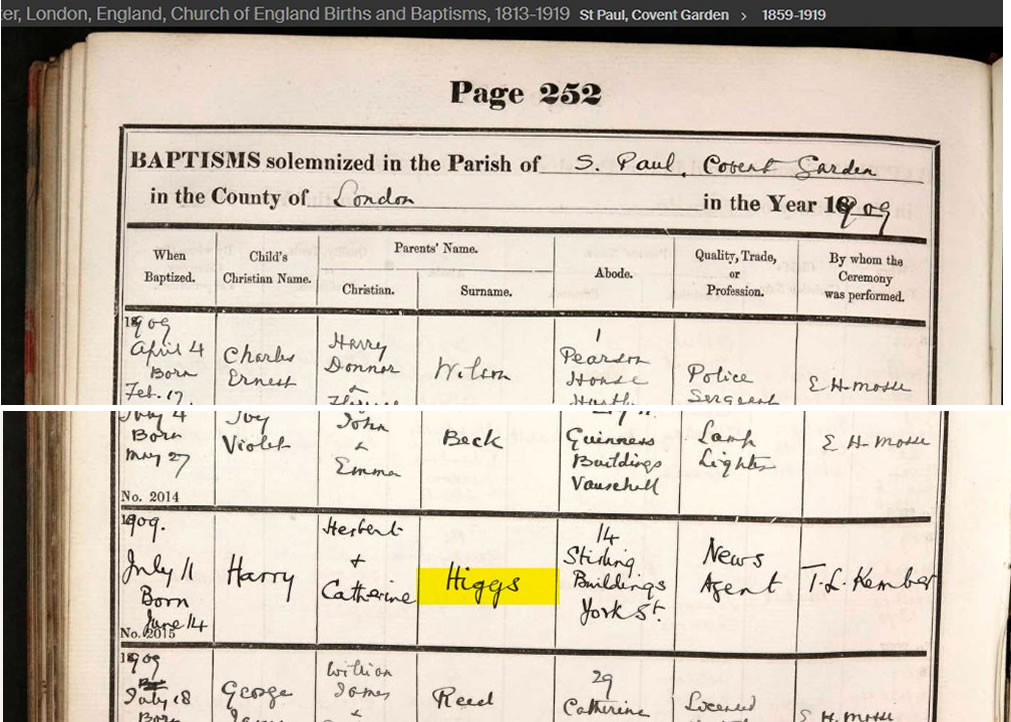 er, London, England, Church of England Births and Baptisms, 1813-1919 St Paul, Covent Garden > 1859-1919
Page 252
BAPTISMS solemnized in the Parish of S. Paul, Covent Garden
in the County of London in the Year 1909
When Baptized.
Child's Christian Name.
Parents' Name.
Christian.
Surname.
Abode.
Quality, Trade, or Profession.
By whom the Ceremony was performed.
1909
April 4
Born
Feb. 17.
Charles
Ernest
Harry
Donnor
&
Wilson
1
Pearson
House
Police
Sergeant
E H. Mosse
July 4
Born
May 27
No. 2014
Joy
Violet
John
&
Emma
Beck
Guinness
Buildings
Vauxhall
Lamp
Lighter
E H. Mosse
1909.
July 11
Born
June 14
No. 2015
Harry
Herbert
+
Catherine
Higgs
14
Stirling
Buildings
York St.
News
Agent
T. L. Kember
1909
July 18
Born
George
James
William
James
&
Reed
29
Catherine
Licensed
E H. Mosse